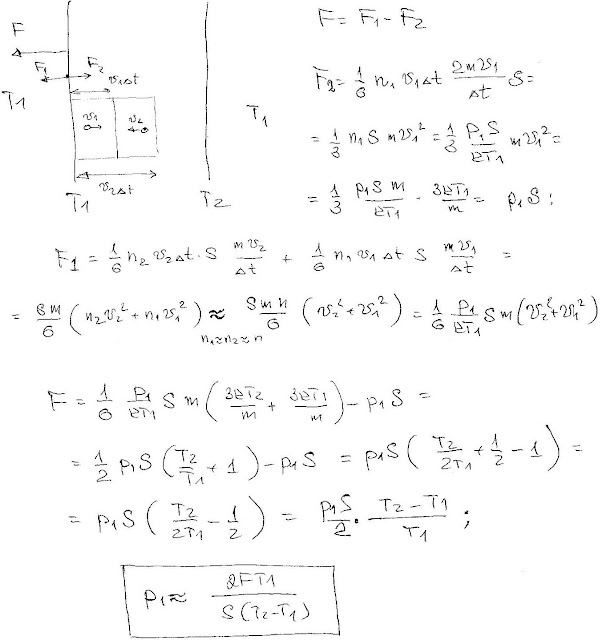 F = F₁ - F₂
F
F₁ F₂
v₁Δt
T₁ T₁
v₁ v₂
v₂Δt
T₁ T₂
F₂ = 1/6 n₁ v₁Δt 2mv₁/Δt S =
= 1/3 n₁ S m v₁² = 1/3 P₁S/kT₁ m v₁² =
= 1/3 P₁Sm/kT₁ · 3kT₁/m = P₁S ;
F₁ = 1/6 n₂ v₂Δt · S mv₂/Δt + 1/6 n₁ v₁Δt S mv₁/Δt =
= Sm/6 (n₂v₂² + n₁v₁²) ≈ Smn/6 (v₂² + v₁²) = 1/6 P₁/kT₁ S m (v₂² + v₁²)
n₁≈n₂≈n
F = 1/6 P₁/kT₁ S m (3kT₂/m + 3kT₁/m) - P₁S =
= 1/2 P₁S (T₂/T₁ + 1) - P₁S = P₁S (T₂/2T₁ + 1/2 - 1) =
= P₁S (T₂/2T₁ - 1/2) = P₁S/2 · T₂-T₁/T₁ ;
P₁ ≈ 2FT₁/S(T₂-T₁)